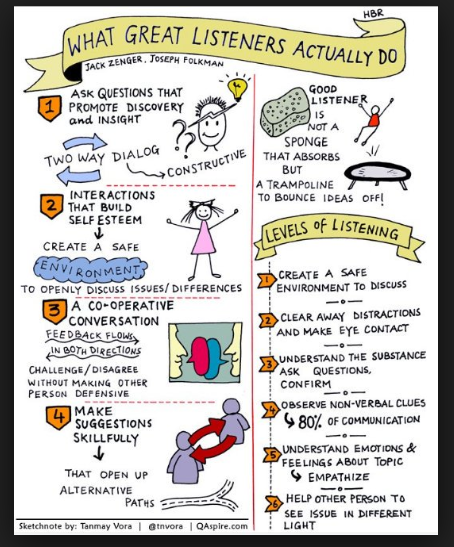 HBR
WHAT GREAT LISTENERS ACTUALLY DO
JACK ZENGER, JOSEPH FOLKMAN
1
ASK QUESTIONS THAT
PROMOTE DISCOVERY
and INSIGHT
TWO WAY DIALOG
CONSTRUCTIVE
2
INTERACTIONS
THAT BUILD
SELF ESTEEM
CREATE A SAFE
ENVIRONMENT
TO OPENLY DISCUSS ISSUES/DIFFERENCES
3
A CO-OPERATIVE
CONVERSATION
FEEDBACK FLOWS
IN BOTH DIRECTIONS
CHALLENGE/DISAGREE
WITHOUT MAKING OTHER
PERSON DEFENSIVE
4
MAKE
SUGGESTIONS
SKILLFULLY
THAT OPEN UP
ALTERNATIVE
PATHS
Sketchnote by: Tanmay Vora | @tnvora | QAspire.com
GOOD
LISTENER
IS
NOT A
SPONGE
THAT ABSORBS
BUT
A TRAMPOLINE
TO BOUNCE IDEAS OFF!
LEVELS of LISTENING
1
CREATE A SAFE
ENVIRONMENT TO DISCUSS
2
CLEAR AWAY DISTRACTIONS
AND MAKE EYE CONTACT
3
UNDERSTAND THE SUBSTANCE
ASK QUESTIONS,
CONFIRM
4
OBSERVE NON-VERBAL CLUES
80% OF COMMUNICATION
5
UNDERSTAND EMOTIONS &
FEELINGS ABOUT TOPIC
EMPATHIZE
6
HELP OTHER PERSON TO
SEE ISSUE IN DIFFERENT
LIGHT